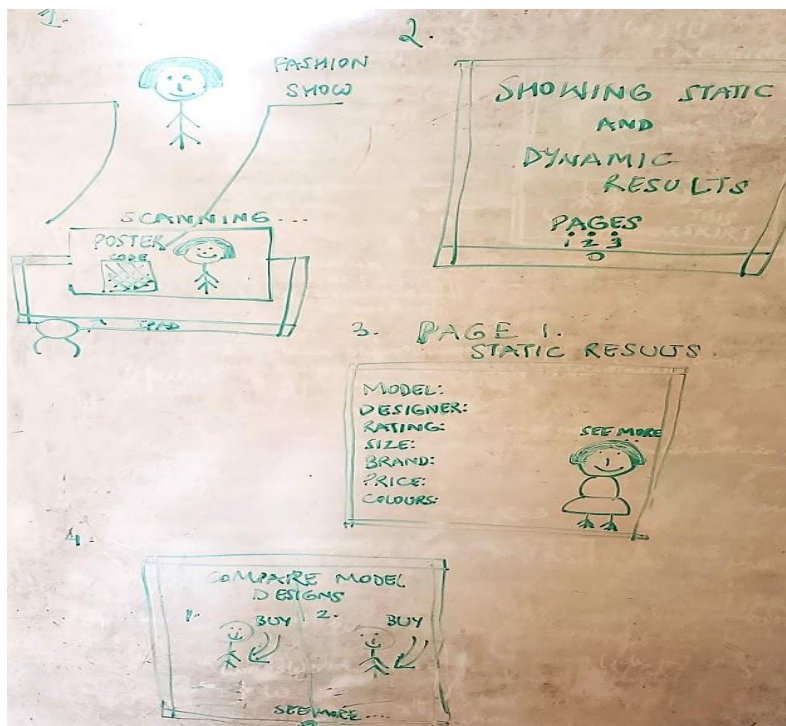 1.
FASHION
SHOW
SCANNING...
POSTER
CODE
2.
SHOWING STATIC
AND
DYNAMIC
RESULTS
PAGES
1 2 3
3. PAGE 1.
STATIC RESULTS
MODEL:
DESIGNER:
RATING:
SIZE:
BRAND:
PRICE:
COLOURS:
SEE MORE
4.
COMPARE MODEL
DESIGNS
1. BUY 2. BUY
SEE MORE....